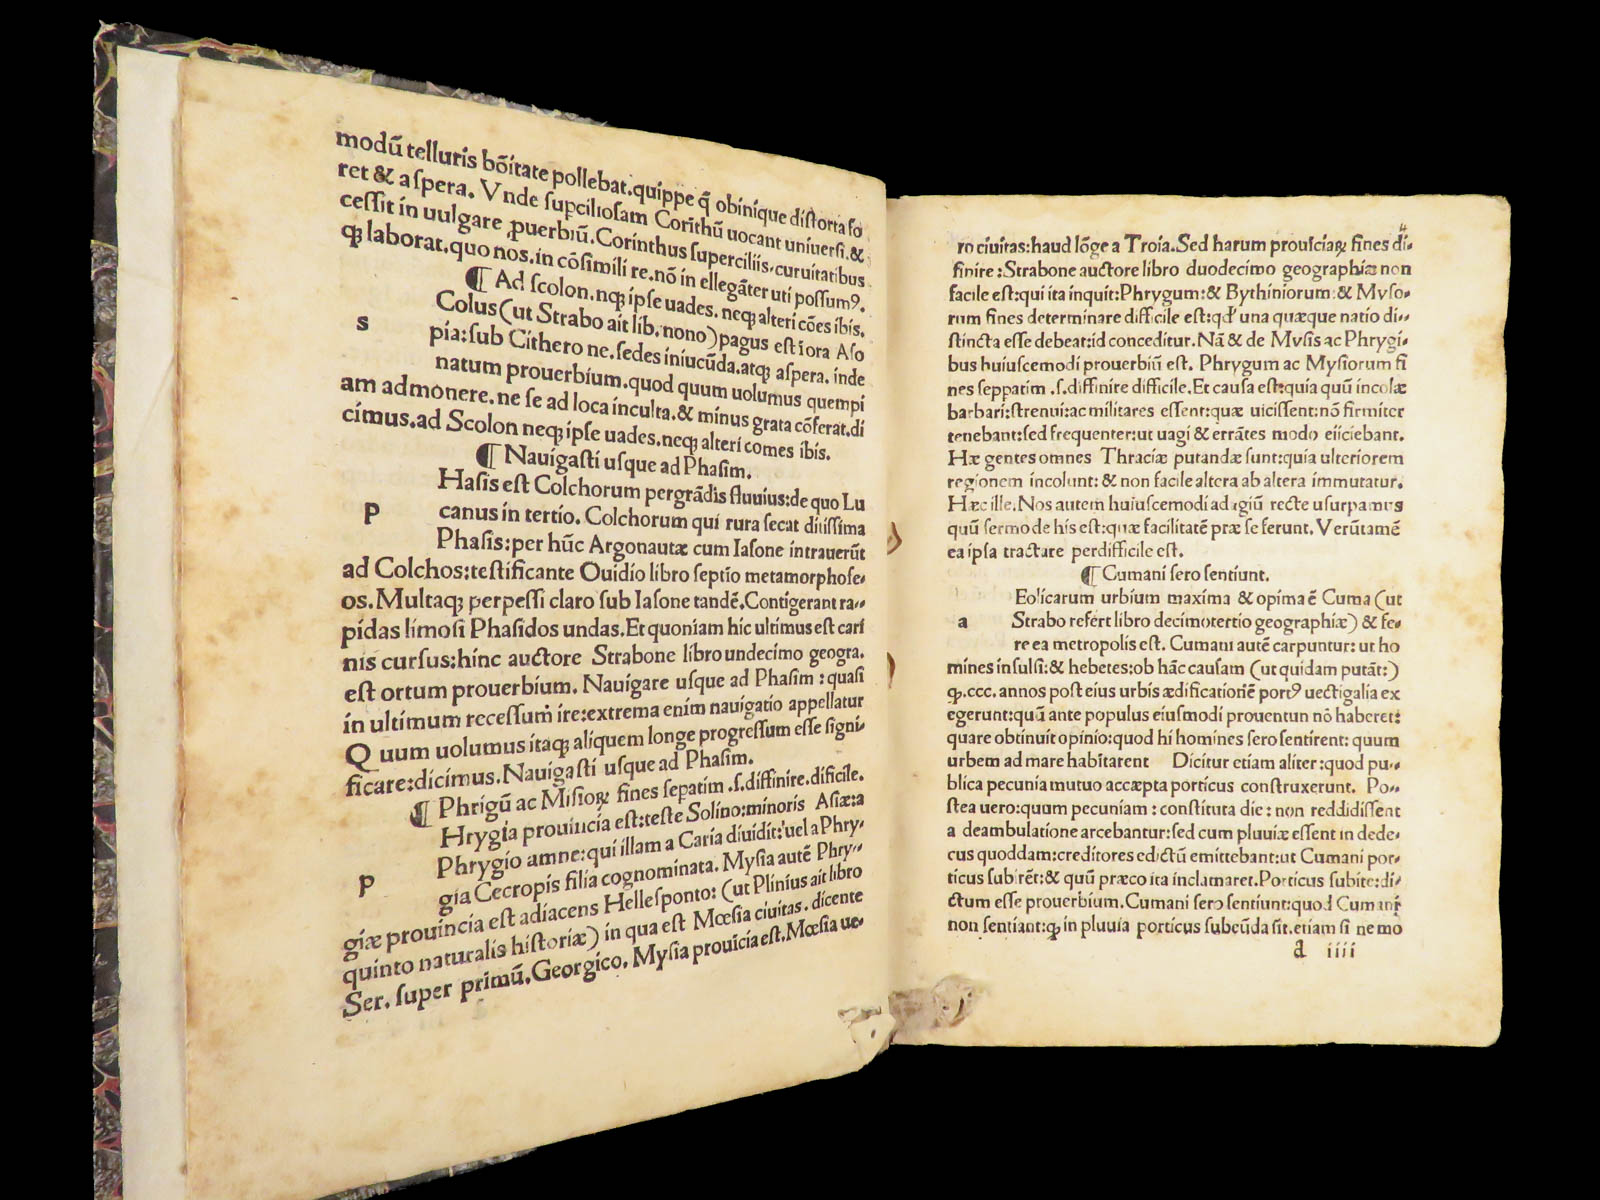 modū telluris bōitate pollebat.quippe q̄ obinique distorta fo
ret & aspera. Vnde supciliosam Corīthū uocant uniuersi.&
cessit in uulgare ꝓuerbiū.Corinthus superciliis,curuitatibus
qꝫ laborat.quo nos.in cōsimili re.nō in ellegāter uti possumꝰ.
¶ Ad scolon.nqꝫ ipse uades. neqꝫ alteri cōes ibis.
s
Colus (ut Strabo ait lib. nono) pagus est iora Aso
pia:sub Cithero ne.sedes iniucūda.atqꝫ aspera. inde
natum prouerbium.quod quum uolumus quempi
am admonere.ne se ad loca inculta.& minus grata cōferat.di
cimus.ad Scolon neqꝫ ipse uades.neqꝫ alteri comes ibis.
¶ Nauigasti usque ad Phasim.
p
Hasis est Colchorum pergrādis fluuius:de quo Lu
canus in tertio. Colchorum qui rura secat ditissima
Phasis:per hūc Argonautæ cum Iasone intrauerūt
ad Colchos:testificante Ouidio libro septio metamorphose-
os.Multaqꝫ perpessi claro sub Iasone tandē.Contigerant ra-
pidas limosi Phasidos undas.Et quoniam hic ultimus est cari
nis cursus:hinc auctore Strabone libro undecimo geogra.
est ortum prouerbium. Nauigare usque ad Phasim : quasi
in ultimum recessum ire:extrema enim nauigatio appellatur
Quum uolumus itaqꝫ aliquem longe progressum esse signi-
ficare:dicimus.Nauigasti usque ad Phasim.
¶ Phrigū ac Misioꝝ fines sepatim .s.diffinire.dificile.
p
Hrygia prouincia est:teste Solino:minoris Asiæ:a
Phrygio amne:qui illam a Caria diuidit:uel a Phry-
gia Cecropis filia cognominata. Mysia autē Phry-
giæ prouincia est adiacens Hellesponto: (ut Plinius ait libro
quinto naturalis historiæ) in qua est Mœsia ciuitas. dicente
Ser. super primū.Georgico. Mysia prouīcia est.Mœsia ue-
4
ro ciuitas:haud lōge a Troia.Sed harum prouīciaꝝ fines di-
finire:Strabone auctore libro duodecimo geographiæ non
facile est:qui ita inquit:Phrygum:& Bythiniorum:& Mysо-
rum fines determinare difficile est:qđ una quæque natio di-
stincta esse debeat:id conceditur. Nā & de Mysis ac Phrygi-
bus huiuscemodi prouerbiū est. Phrygum ac Mysiorum fi
nes seppatim .s.diffinire difficile.Et causa est:quia quū incolæ
barbari:strenui:ac militares essent:quæ uicissent:nō firmiter
tenebant:sed frequenter:ut uagi & errātes modo eiiciebant.
Hæ gentes omnes Thraciæ putandæ sunt:quia ulteriorem
regionem incolunt:& non facile altera ab altera immutatur.
Hæc ille.Nos autem huiuscemodi adagiū recte usurpamus
quū sermo de his est:quæ facilitatē præ se ferunt. Verūtamē
ea ipsa tractare perdifficile est.
¶ Cumani sero sentiunt.
a
Eolicarum urbium maxima & opima ē Cuma (ut
Strabo refert libro decimotertio geographiæ) & fe-
re ea metropolis est. Cumani autē carpuntur: ut ho
mines insulsi:& hebetes:ob hāc causam (ut quidam putāt:)
qꝫ.ccc. annos post eius urbis ædificationē portꝰ uectigalia ex
egerunt:quū ante populus eiusmodi prouentun nō haberet:
quare obtinuit opinio:quod hi homines sero sentirent: quum
urbem ad mare habitarent Dicitur etiam aliter:quod pu-
blica pecunia mutuo accæpta porticus construxerunt. Po-
stea uero:quum pecuniam : constituta die: non reddidissent
a deambulatione arcebantur:sed cum pluuiæ essent in dede-
cus quoddam:creditores edictū emittebant:ut Cumani por-
ticus subirēt:& quū præco ita inclamaret.Porticus subite:di-
ctum esse prouerbium.Cumani sero sentiunt:quod Cumani
non sentiant:qꝫ in pluuia porticus subeūda sit.etiam si ne mo
a iiii